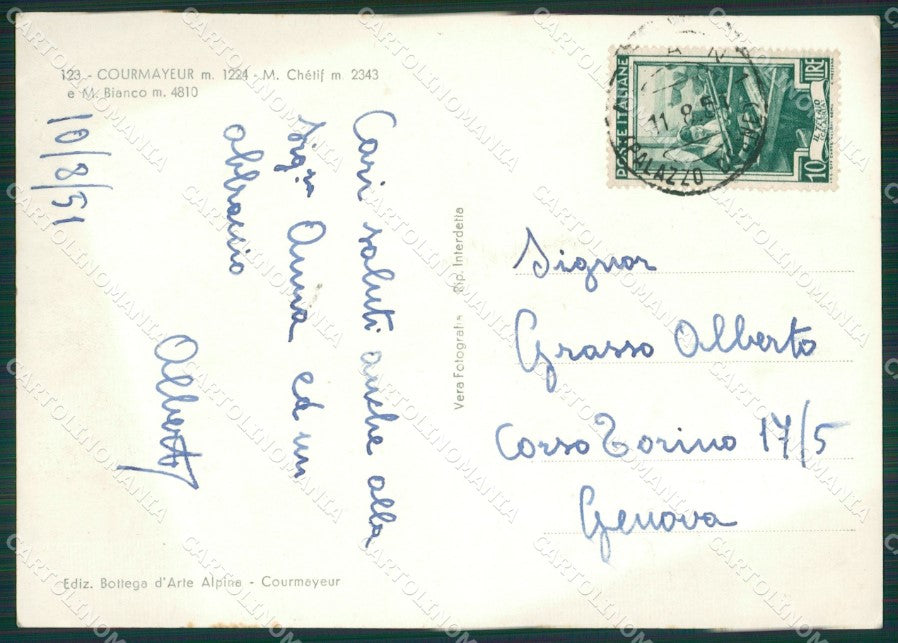 123 - COURMAYEUR m. 1224 - M. Chétif m 2343
e M. Bianco m. 4810
10/8/51
Cari saluti anche alla
Sigra Anna ed un
abbraccio
Alberto
Ediz. Bottega d'Arte Alpina - Courmayeur
Vera Fotografia Rip. Interdetta
POSTE ITALIANE
10 LIRE
11. 8. 51
Signor
Grasso Alberto
Corso Torino 17/5
Genova
CARTOLINOMANIA